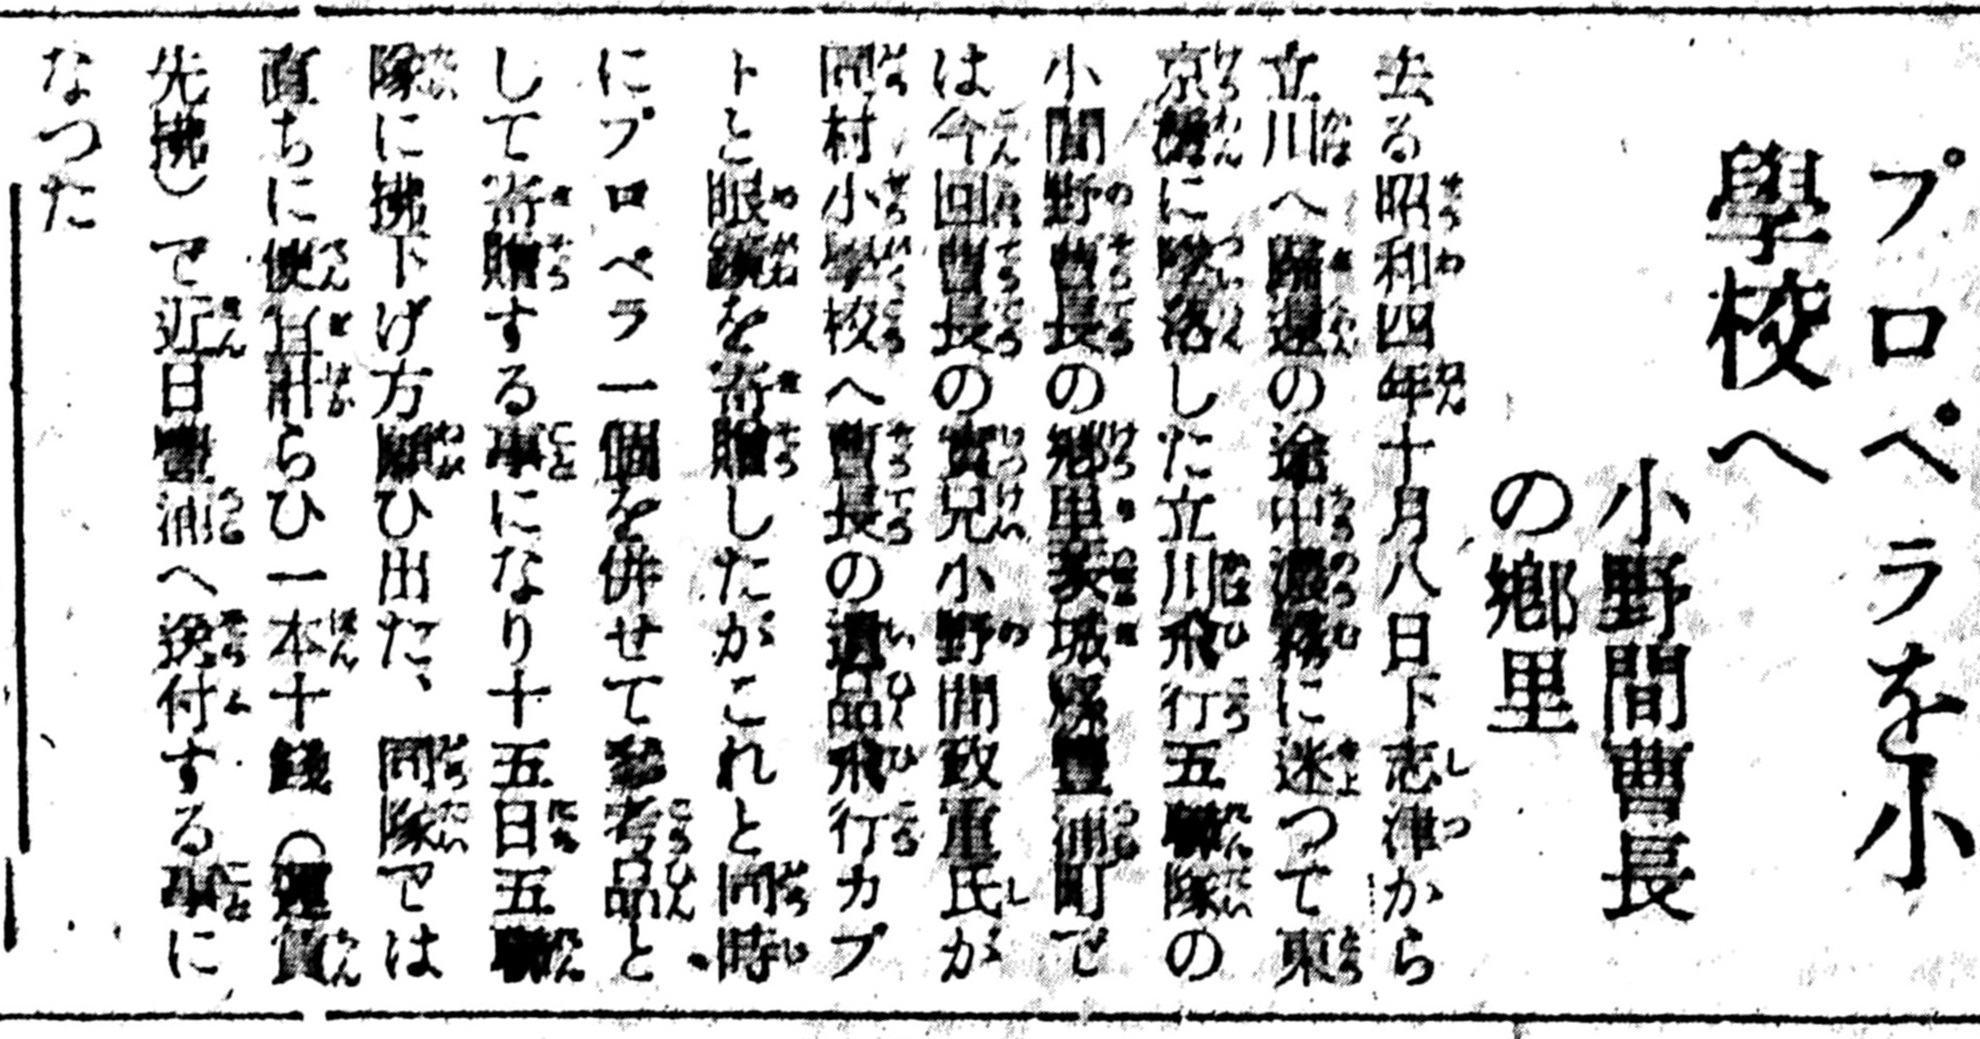 プロペラを小
學校へ
小野間曹長
の鄕里
去る昭和四年十月八日下志津から
立川へ歸還の途中濃霧に迷つて東
京灣に墜落した立川飛行五聯隊の
小間野曹長の鄕里茨城縣豐浦町で
は今回曹長の實兄小野間致重氏が
同村小學校へ曹長の遺品飛行カプ
トと眼鏡を寄贈したがこれと同時
にプロペラ一個を併せて參考品と
して寄贈する事になり十五日五聯
隊に拂下げ方願ひ出た、同隊では
直ちに使ひ一本十錢（運賃
先拂）で近日豐浦へ送付する事に
なつた